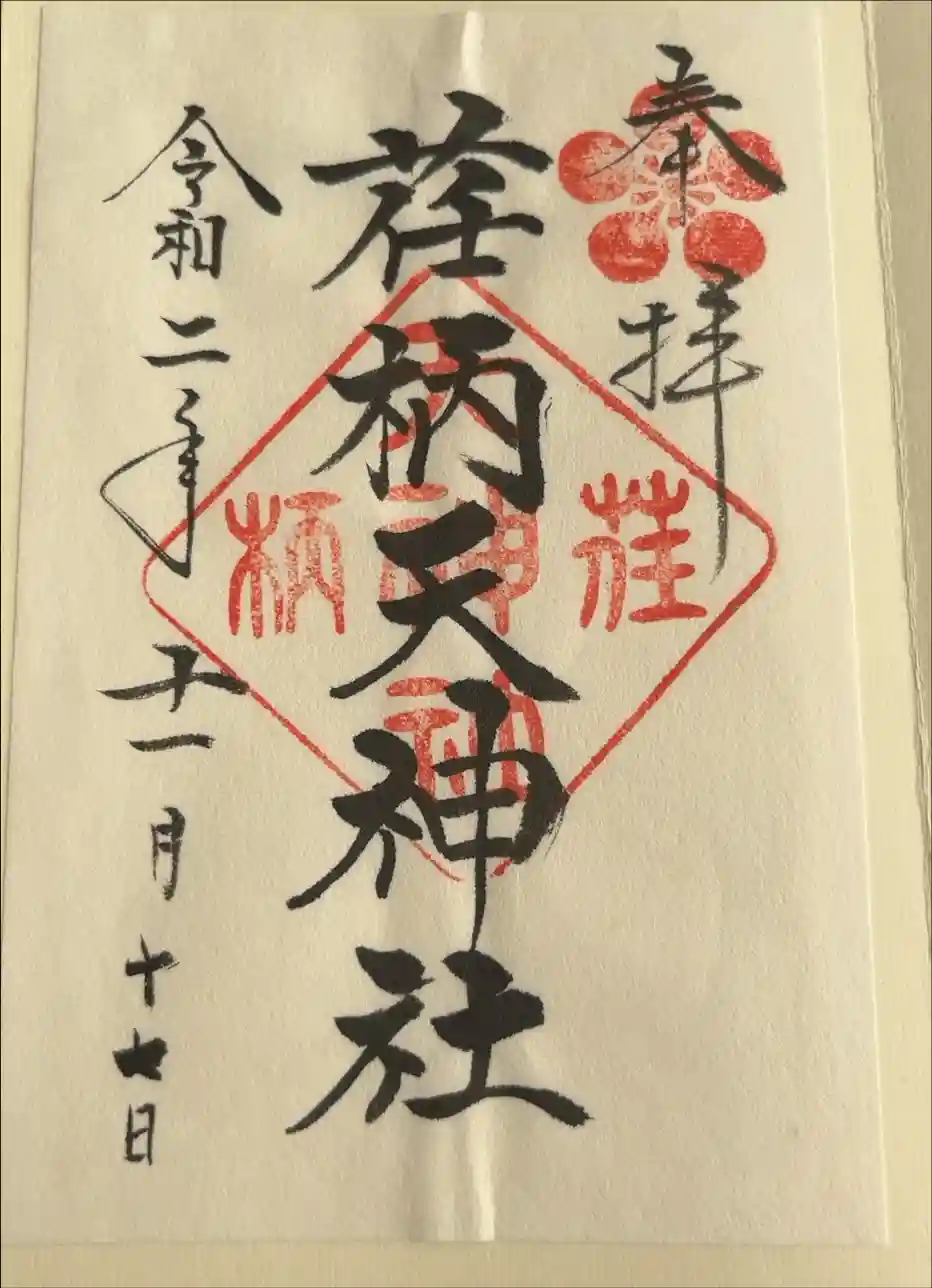 奉拝
荏柄天神社
令和二年十一月十七日
荏
柄
天
神
社